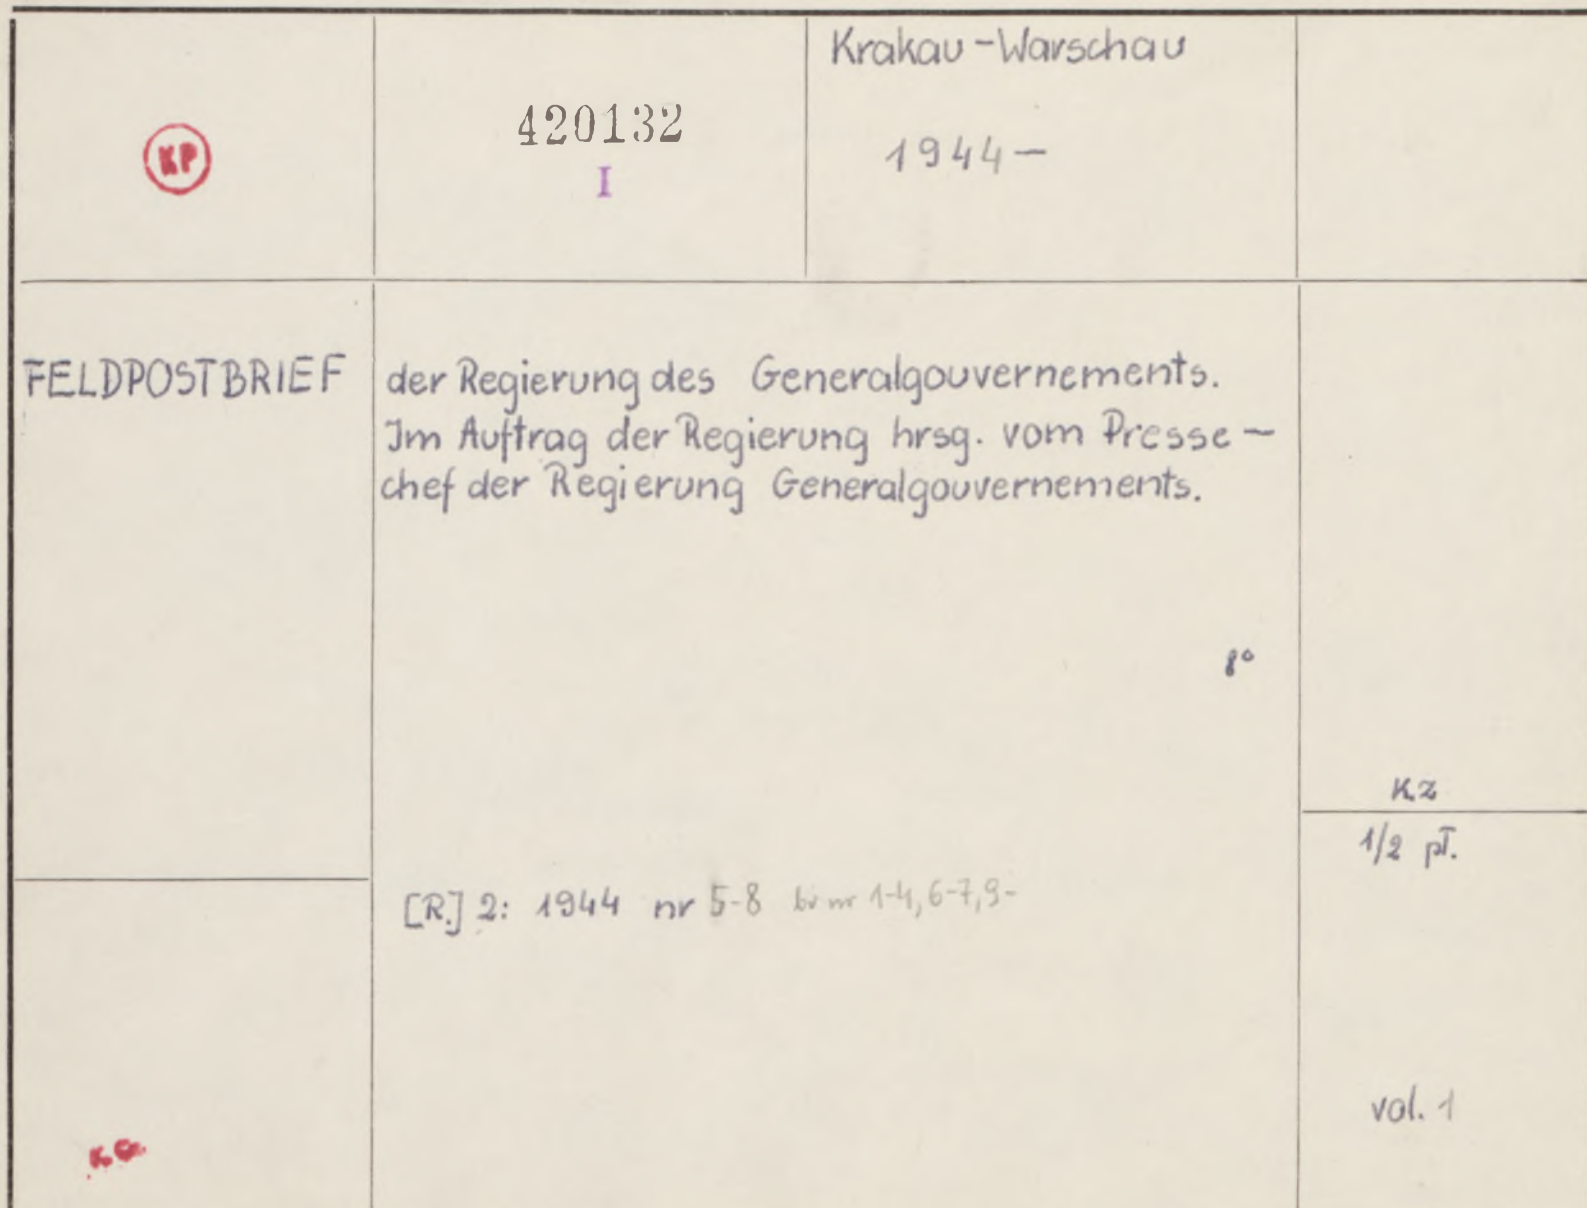 KP
420132
I
Krakau-Warschau
1944-
FELDPOSTBRIEF
der Regierung des Generalgouvernements.
Im Auftrag der Regierung hrsg. vom Presse-
chef der Regierung Generalgouvernements.
8°
K.Z
1/2 pł.
[R.] 2: 1944 nr 5-8 br nr 1-4, 6-7, 9-
vol. 1